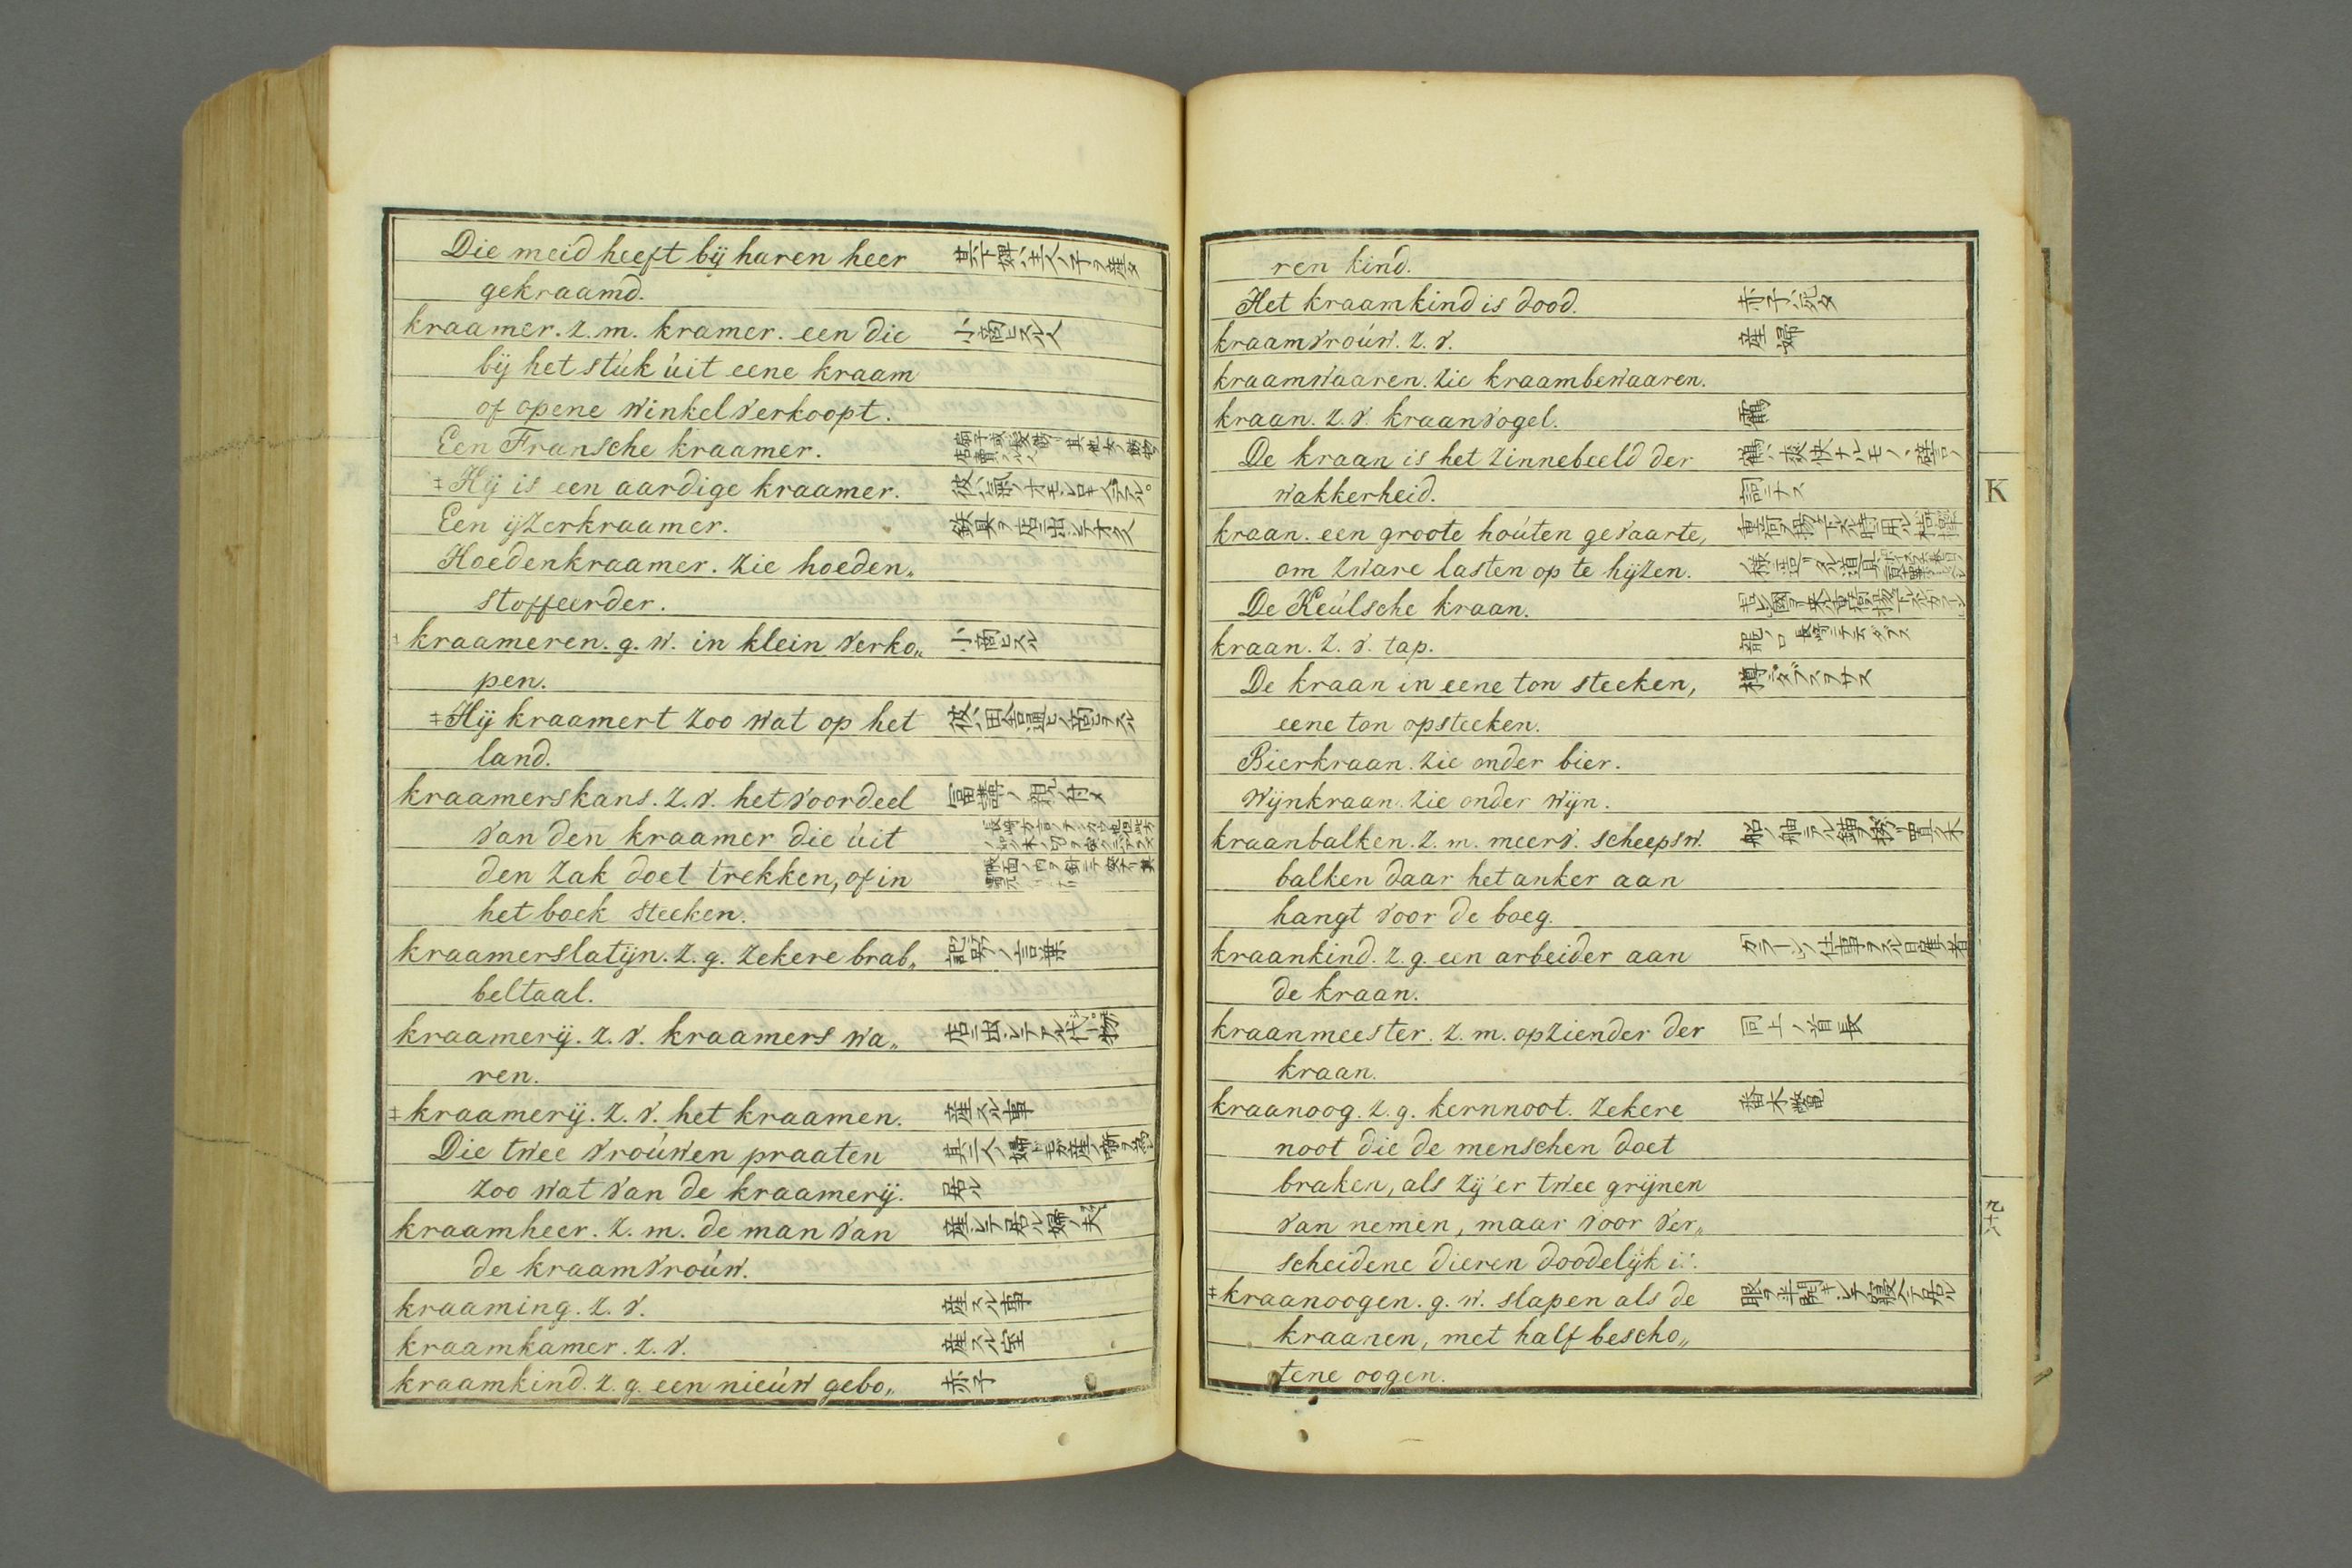 Die meid heeft bij haren heer 其下婢ハ主人ノ子ヲ産タ
gekraamd.
kraamer. z. m. kramer. een die 小商ヒスル人
bij het stúk úit eene kraam
of opene winkel verkoopt.
Een Fransche kraamer.
‡Hij is een aardige kraamer. 彼ハ氣ノオモシロキ人デアル。
Een ijzerkraamer. 鉄具ヲ店ニ出シテオク人
Hoedenkraamer. zie hoeden„
stoffeerder.
‡kraameren. g. w. in klein verko„ 小商ヒスル
pen.
‡Hij kraamert zoo wat op het 彼ハ田舎通ヒノ商ヒヲスル
land.
kraamerskans. z. v. het voordeel
van den kraamer die úit
den zak doet trekken, of in
het boek steeken.
kraamerslatijn. z. g. zekere brab„ ノ言葉
beltaal.
kraamerij. z. v. kraamers wa„ 店ニ出シテアル代物
ren.
‡kraamerij. z. v. het kraamen. 産スル事
Die twee vroúwen praaten 其二人ノ婦
zoo wat van de kraamerij. 居ル
kraamheer. z. m. de man van 産シテ居ル婦ノ夫
de kraamvroúw.
kraaming. z. v. 産スル事
kraamkamer. z. v. 産スル室
kraamkind. z. g. een nieúw gebo„ 赤子
ren kind.
Het kraamkind is dood. 赤子ハ死タ
kraamvroúw. z. v. 産婦
kraamwaaren. zie kraambewaaren.
kraan. z. v. kraanvogel. 鶴
De kraan is het zinnebeeld der 鶴ハ爽快ナルモノヽ
wakkerheid. ニナス
kraan. een groote hoúten gevaarte,
om zware lasten op te hijzen.
De Keúlsche kraan.
kraan. z. v. tap.
De kraan in eene ton steeken, 樽ニダブスヲサス
eene ton opsteeken.
Bierkraan. zie onder bier.
Wijnkraan. zie onder wijn.
kraanbalken. z. m. meerv. scheepsw. 船ノ舳ニテル錨ヲ掛ケ置ク木
balken daar het anker aan
hangt voor de boeg.
kraankind. z. g. een arbeider aan カラーンノ仕事ヲスル日雇ノ者
de kraan.
kraanmeester. z. m. opziender der 同上ノ首長
kraan.
kraanoog. z. g. kernnoot. zekere 番木鼈
noot die de menschen doet
braken, als zij er twee grijnen
van nemen, maar voor ver„
scheidene dieren doodelijk is.
‡kraanoogen. g. w. slapen als de 眼ヲ半開キシテ寝入テ居ル
kraanen, met half bescho„
tene oogen.
K
六十九